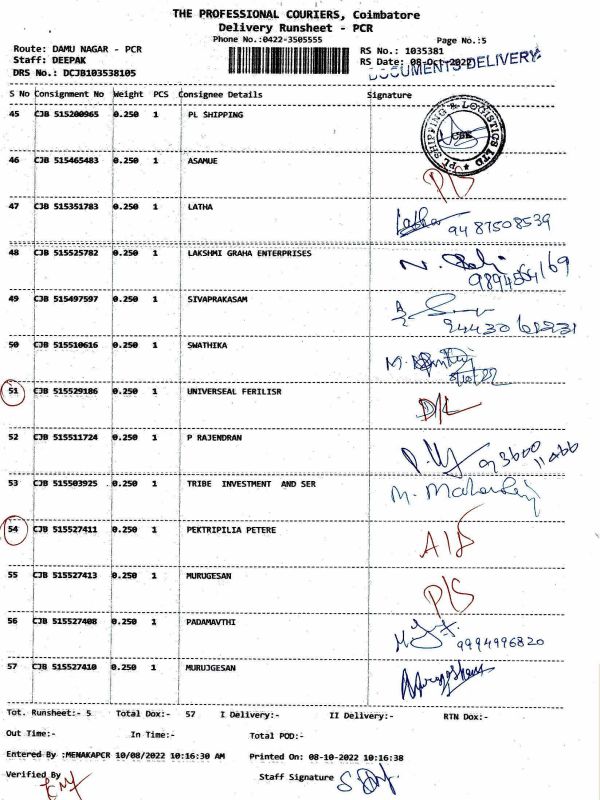 THE PROFESSIONAL COURIERS, Coimbatore
Delivery Runsheet - PCR
Phone No.:0422-3505555 Page No.:5
Route: DAMU NAGAR - PCR RS No.: 1035381
Staff: DEEPAK RS Date: 08-Oct-2022
DOCUMENTS DELIVERY
DRS No.: DCJB103538105
S No Consignment No Weight PCS Consignee Details Signature
45 CJB 515200965 0.250 1 PL SHIPPING
PL SHIPPING & LOGISTICS LTD ★ CBE
46 CJB 515465483 0.250 1 ASAMUE
47 CJB 515351783 0.250 1 LATHA Latha 9487508539
48 CJB 515525782 0.250 1 LAKSHMI GRAHA ENTERPRISES
49 CJB 515497597 0.250 1 SIVAPRAKASAM
50 CJB 515510616 0.250 1 SWATHIKA
51 CJB 515529186 0.250 1 UNIVERSEAL FERILISR D/L
52 CJB 515511724 0.250 1 P RAJENDRAN
53 CJB 515503925 0.250 1 TRIBE INVESTMENT AND SER
54 CJB 515527411 0.250 1 PEKTRIPILIA PETERE
55 CJB 515527413 0.250 1 MURUGESAN P/S
56 CJB 515527408 0.250 1 PADAMAVTHI 9994996820
57 CJB 515527410 0.250 1 MURUJGESAN
Tot. Runsheet:- 5 Total Dox:- 57 I Delivery:- II Delivery:- RTN Dox:-
Out Time:- In Time:- Total POD:-
Entered By :MENAKAPCR 10/08/2022 10:16:30 AM Printed On: 08-10-2022 10:16:38
Verified By Staff Signature